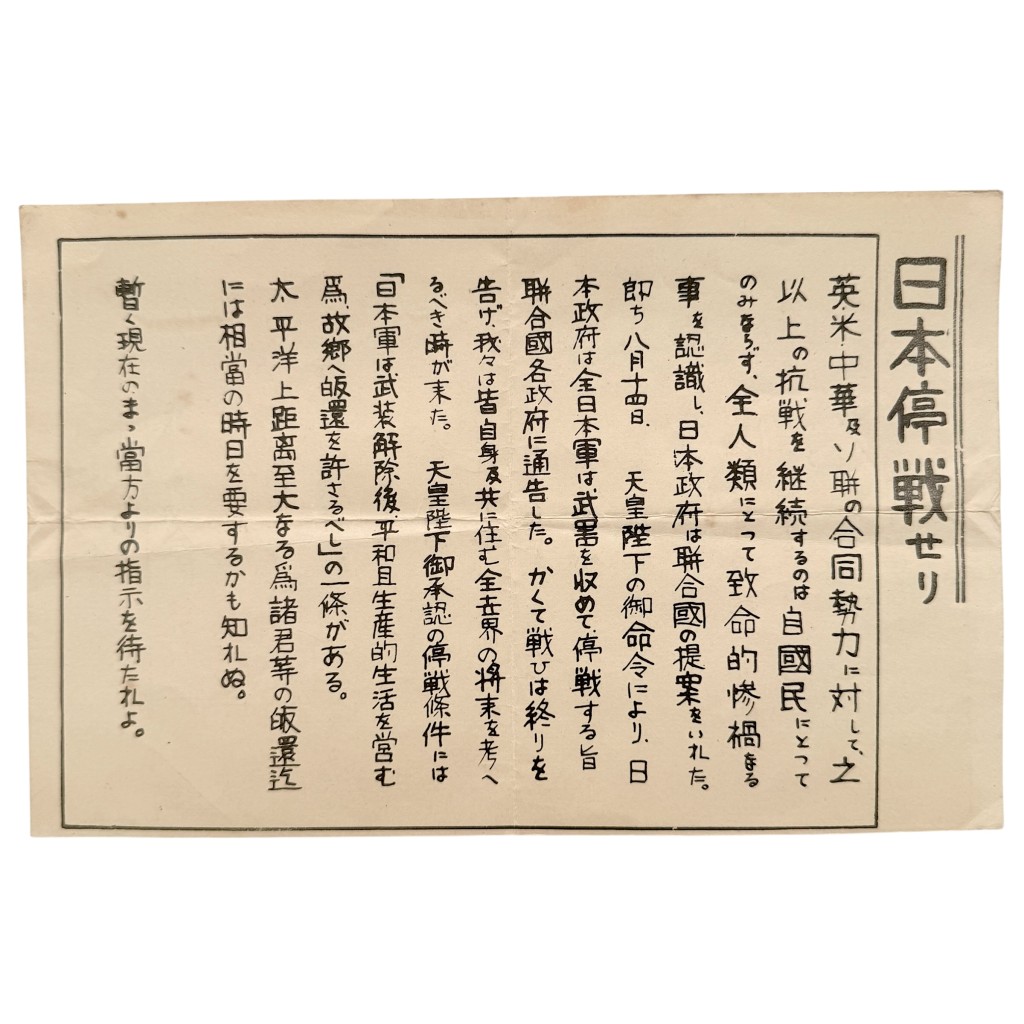 日本停戦せり
英米・中華及ソ聯の合同勢力に対して、之
以上の抗戦を継続するのは自國民にとつて
のみならず、全人類にとつて致命的惨禍なる
事を認識し、日本政府は聯合國の提案をいれた。
即ち八月十四日、天皇陛下の御命令により、日
本政府は全日本軍は武器を収めて停戦する旨
聯合國各政府に通告した。かくて戦ひは終りを
告げ、我々は皆自身及共に住む全世界の将来を考へ
るべき時が来た。天皇陛下御承認の停戦條件には
「日本軍は武装解除後、平和且生産的生活を営む
爲、故郷へ皈還を許さるべし」の一條がある。
太平洋上距離至大なる爲諸君等の皈還迄
には相當の時日を要するかも知れぬ。
暫く現在のまゝ當方よりの指示を待たれよ。